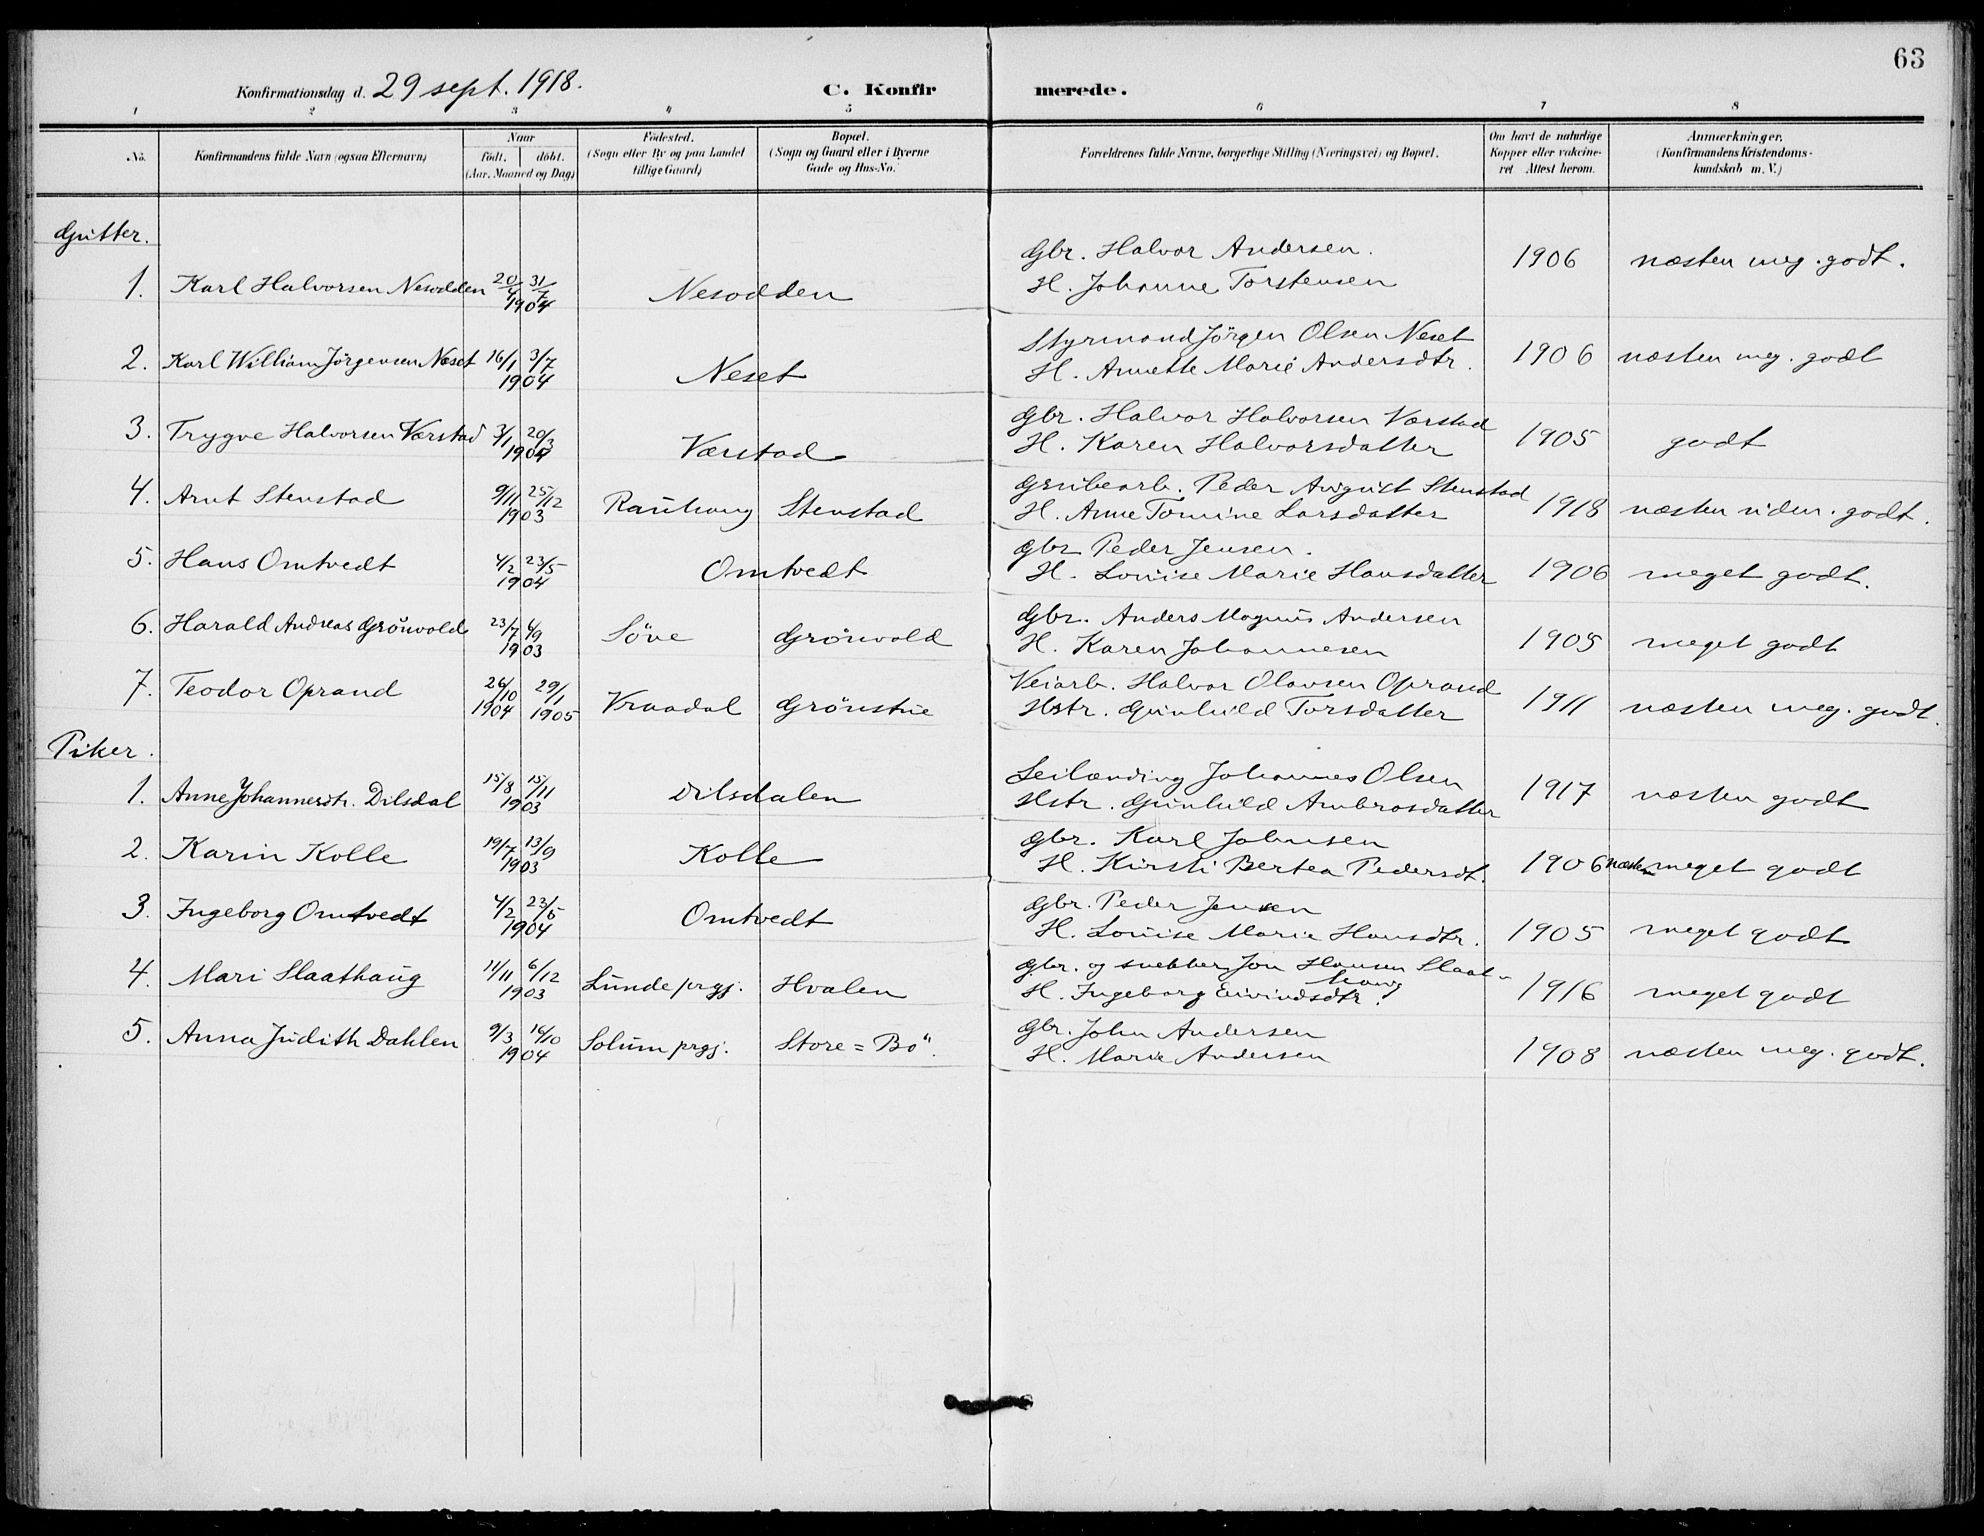 63
Konfirmationsdag d. 29 sept. 1918.
C. Konfirmerede.
1 2 3 4 5 6 7 8
No. Konfirmandens fulde Navn (ogsaa Efternavn) Naar født. døbt. (Aar, Maaned og Dag) Fødested. (Sogn eller By og paa Landet tillige Gaard) Bopæl. (Sogn og Gaard eller i Byerne Gade og Hus-No. Forældrenes fulde Navne, borgerlige Stilling (Næringsvei) og Bopæl. Om havt de naturlige Kopper eller vakcineret. Attest herom. Anmærkninger. (Konfirmandens Kristendomskundskab m. V.)
Gutter.
1. Karl Halvorsen Nesodden 20/4 31/7 1904 Nesodden Gbr. Halvor Andersen. H. Johanne Torstensen 1906 næsten meg. godt.
2. Karl William Jørgensen Næset 16/1 3/7 1904 Neset Styrmand Jørgen Olsen Neset H. Annette Marie Andersdtr. 1906 næsten meg. godt
3. Trygve Halvorsen Værstad 3/1 20/3 1904 Værstad Gbr. Halvor Halvorsen Værstad H. Karen Halvorsdatter 1905 godt
4. Arnt Stenstad 9/11 25/12 1903 Rauhaug Stenstad Grubearb. Peder August Stenstad H. Anne Tomine Larsdatter 1918 næsten uden. godt.
5. Hans Omtvedt 4/2 23/5 1904 Omtvedt Gbr Peder Jensen. H. Louise Marie Hansdatter 1906 meget godt.
6. Harald Andreas Grönvold 23/7 6/9 1903 Söve Grönvold Gbr. Anders Magnus Andersen H. Karen Johannesen 1905 meget godt
7. Teodor Oprand 26/10 1904 29/1 1905 Vraadal Grönstue Veiarb. Halvor Olavsen Oprand Hstr. Gunhild Torsdatter 1911 næsten meg. godt.
Piker.
1. Anne Johannesdtr. Dilsdal 15/8 15/11 1903 Dilsdalen Leilænding Johannes Olsen Hstr. Gunhild Ambrosdatter 1917 næsten godt
2. Karin Kolle 19/7 13/9 1903 Kolle Gbr. Karl Johnsen H. Kirsti Bertea Pedersdt. 1906 næsten meget godt
3. Ingeborg Omtvedt 4/2 23/5 1904 Omtvedt Gbr. Peder Jensen H. Louise Marie Hansdtr. 1905 meget godt
4. Mari Slaathaug 11/11 6/12 1903 Lunde prgj. Hvalen Gbr. og snekker Jon Hansen Slaathaug H. Ingeborg Eivindsdtr. 1916 meget godt
5. Anna Judith Dahlen 9/3 16/10 1904 Solum prgj. Store=Bö. Gbr. John Andersen H. Marie Andersen 1908 næsten meg. godt.